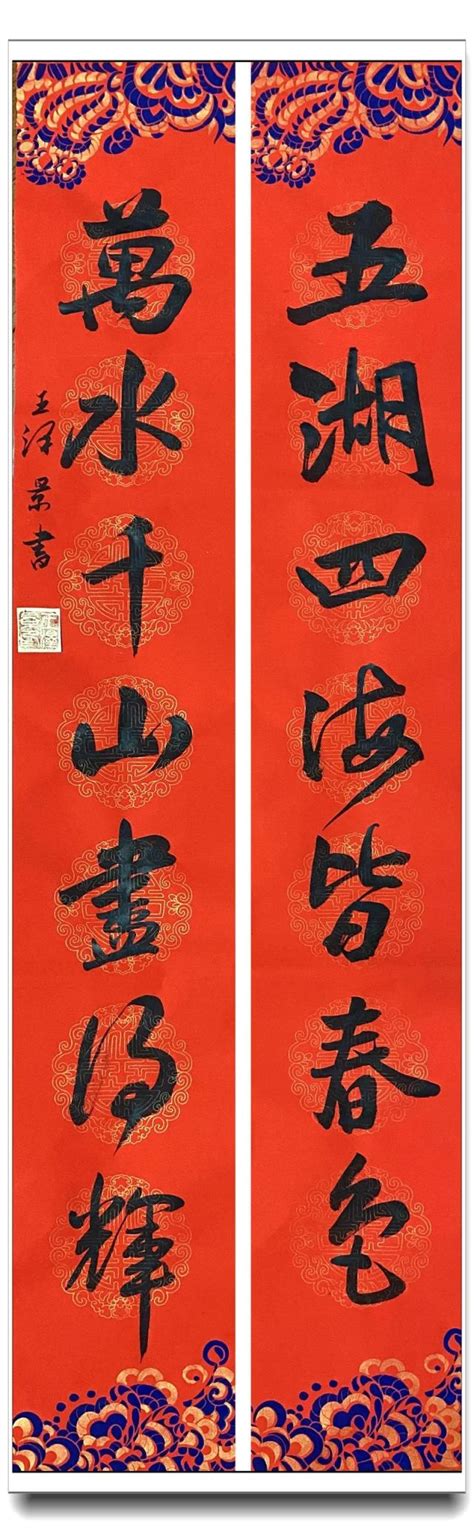 五湖四海皆春色
萬水千山盡得輝
王泽景書